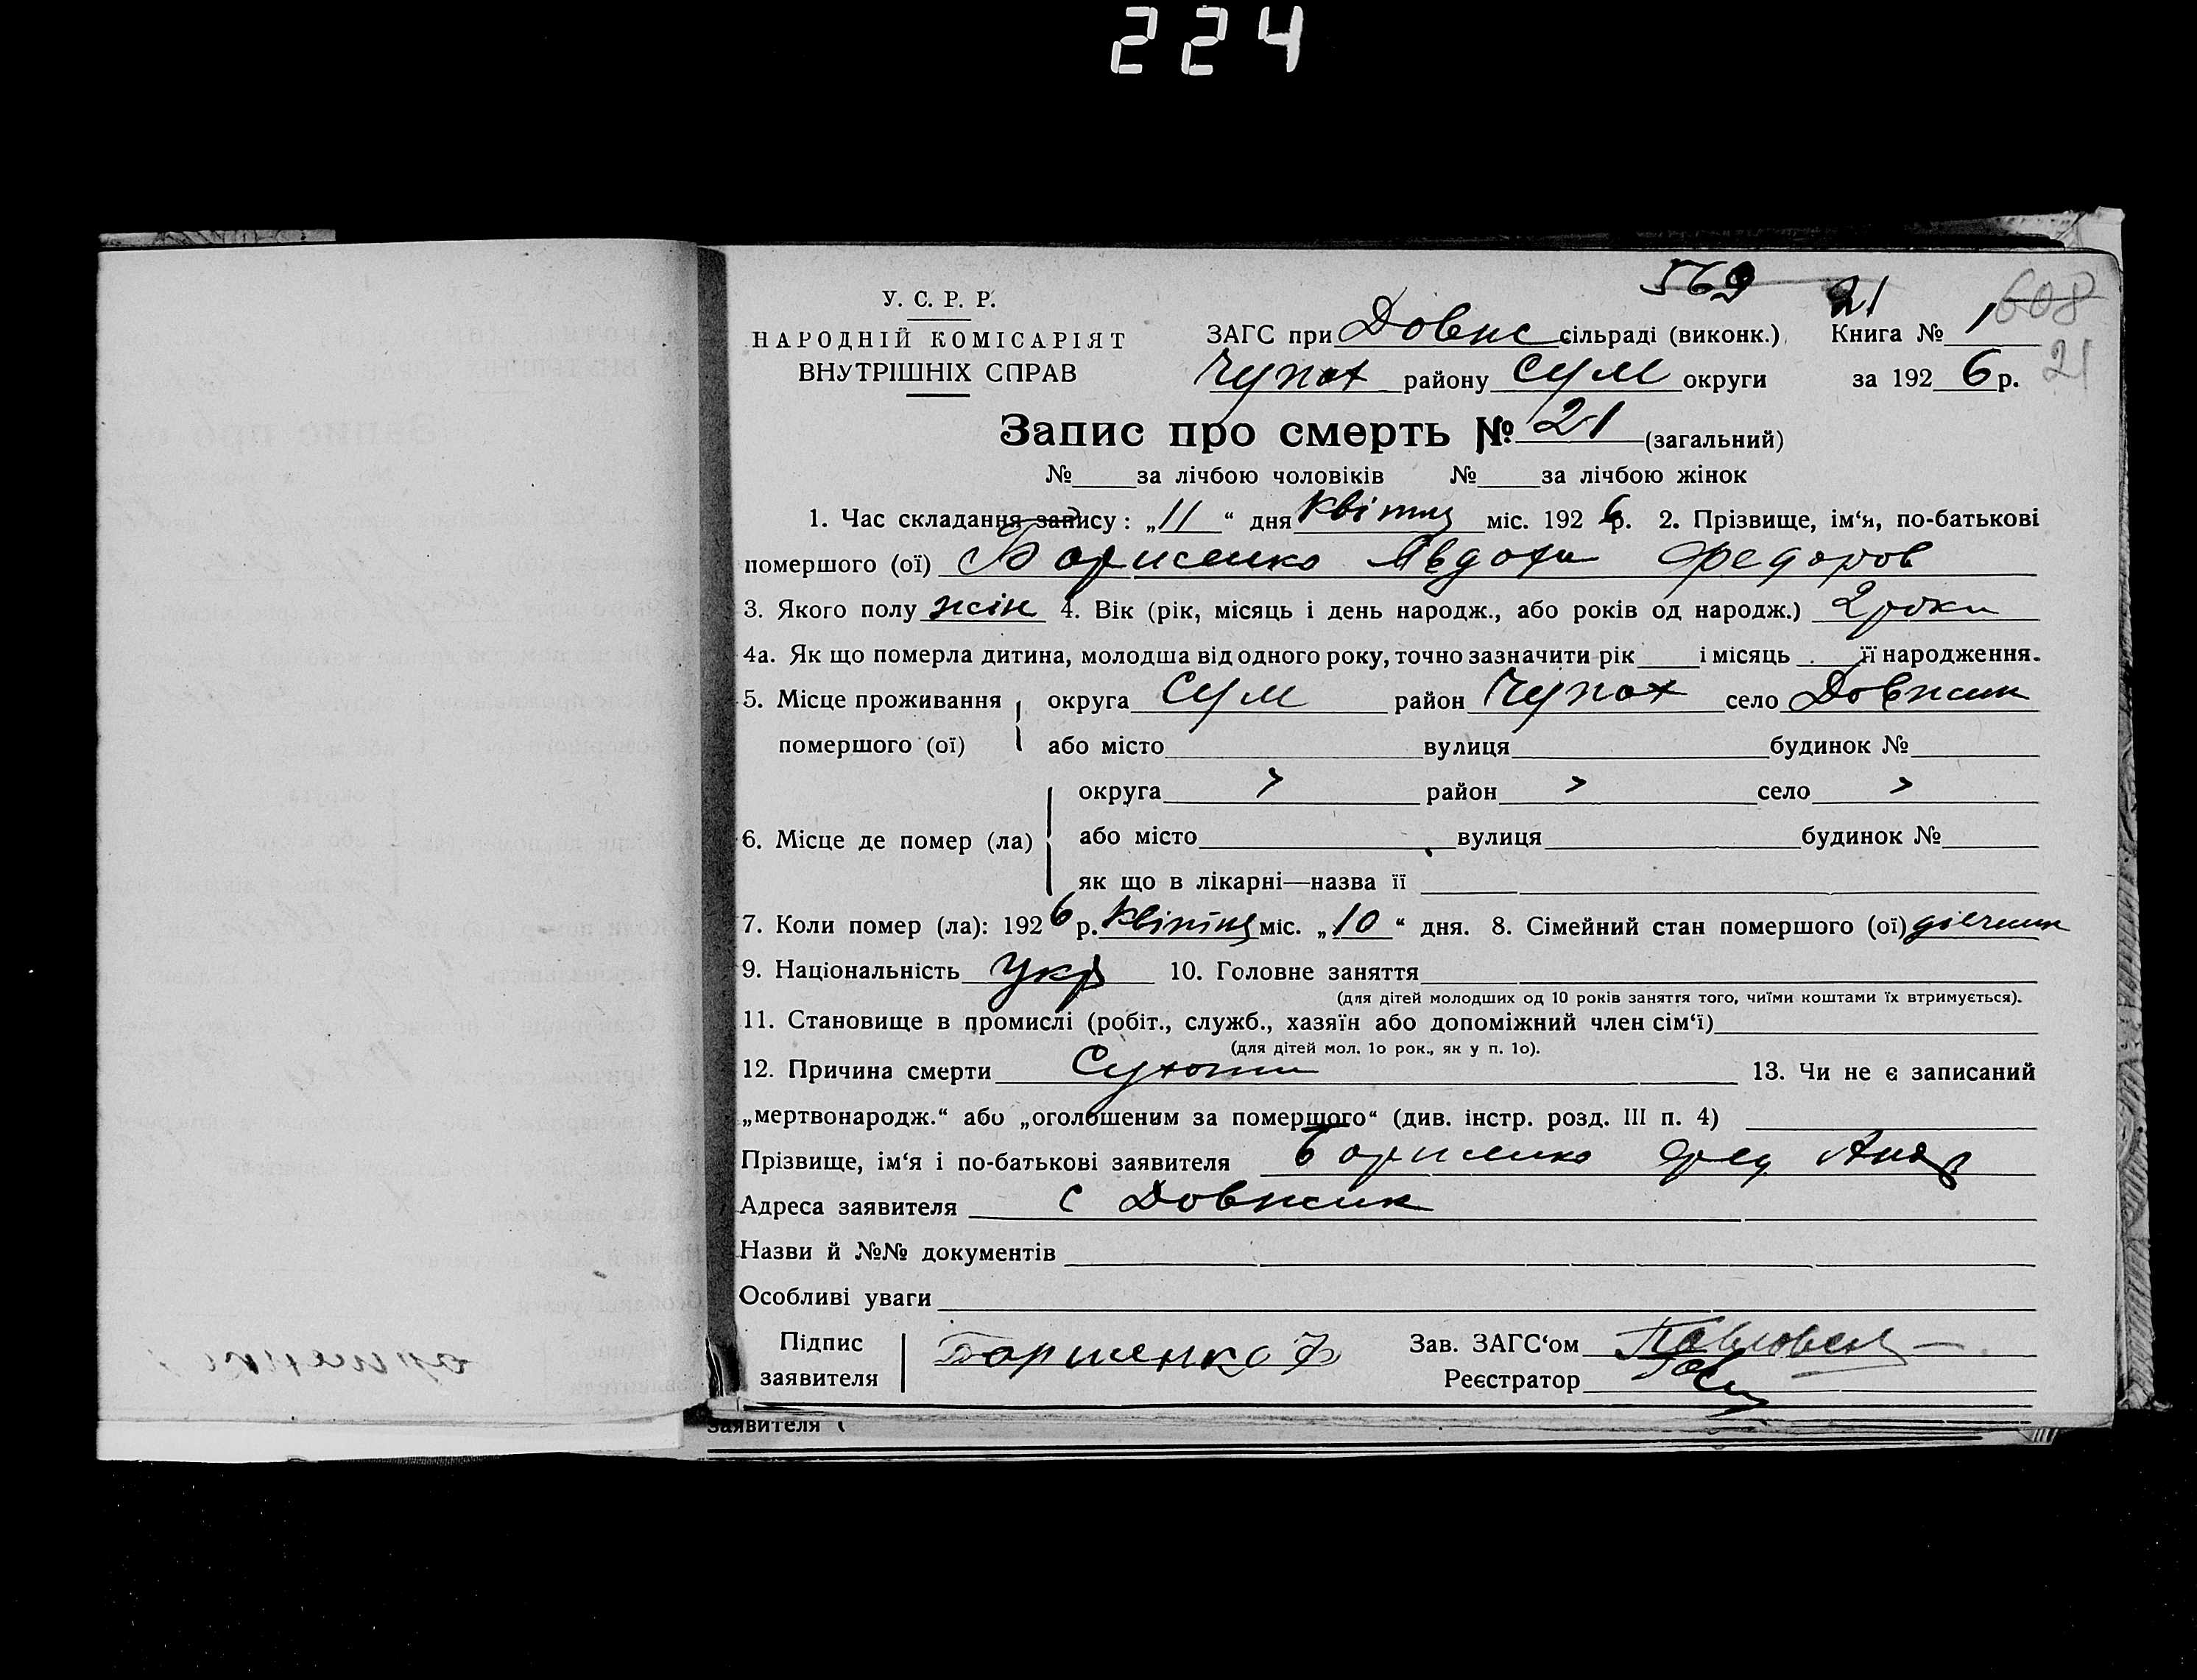 224
569 21 608
У. С. Р. Р.
НАРОДНІЙ КОМІСАРІЯТ
ВНУТРІШНІХ СПРАВ
ЗАГС при Довж сільраді (виконк.) Книга № 1
Чупах району Сум округи за 192 6 р. 21
Запис про смерть № 21 (загальний)
№ за лічбою чоловіків № за лічбою жінок
1. Час складання запису: „11“ дня квітня міс. 192 6 р. 2. Прізвище, ім‘я, по-батькові
помершого (ої) Борисенко Явдоха Федоров
3. Якого полу жін 4. Вік (рік, місяць і день народж., або років од народж.) 2 роки
4а. Як що померла дитина, молодша від одного року, точно зазначити рік і місяць її народження.
5. Місце проживання округа Сум район Чупах село Довжик
помершого (ої) або місто вулиця будинок №
округа район село
6. Місце де помер (ла) або місто вулиця будинок №
як що в лікарні—назва її
7. Коли помер (ла): 192 6 р. квітня міс. „10“ дня. 8. Сімейний стан помершого (ої) дівчина
9. Національність Укр 10. Головне заняття
(для дітей молодших од 10 років заняття того, чиїми коштами їх втримується).
11. Становище в промислі (робіт., служб., хазяїн або допоміжний член сім‘ї)
(для дітей мол. 10 рок., як у п. 10).
12. Причина смерти Сухоти 13. Чи не є записаний
„мертвонародж.“ або „оголошеним за помершого“ (див. інстр. розд. III п. 4)
Прізвище, ім‘я і по-батькові заявителя Борисенко Фед Андр
Адреса заявителя с Довжик
Назви й №№ документів
Особливі уваги
Підпис заявителя Борисенко Ф Зав. ЗАГС‘ом
Реєстратор
заявителя